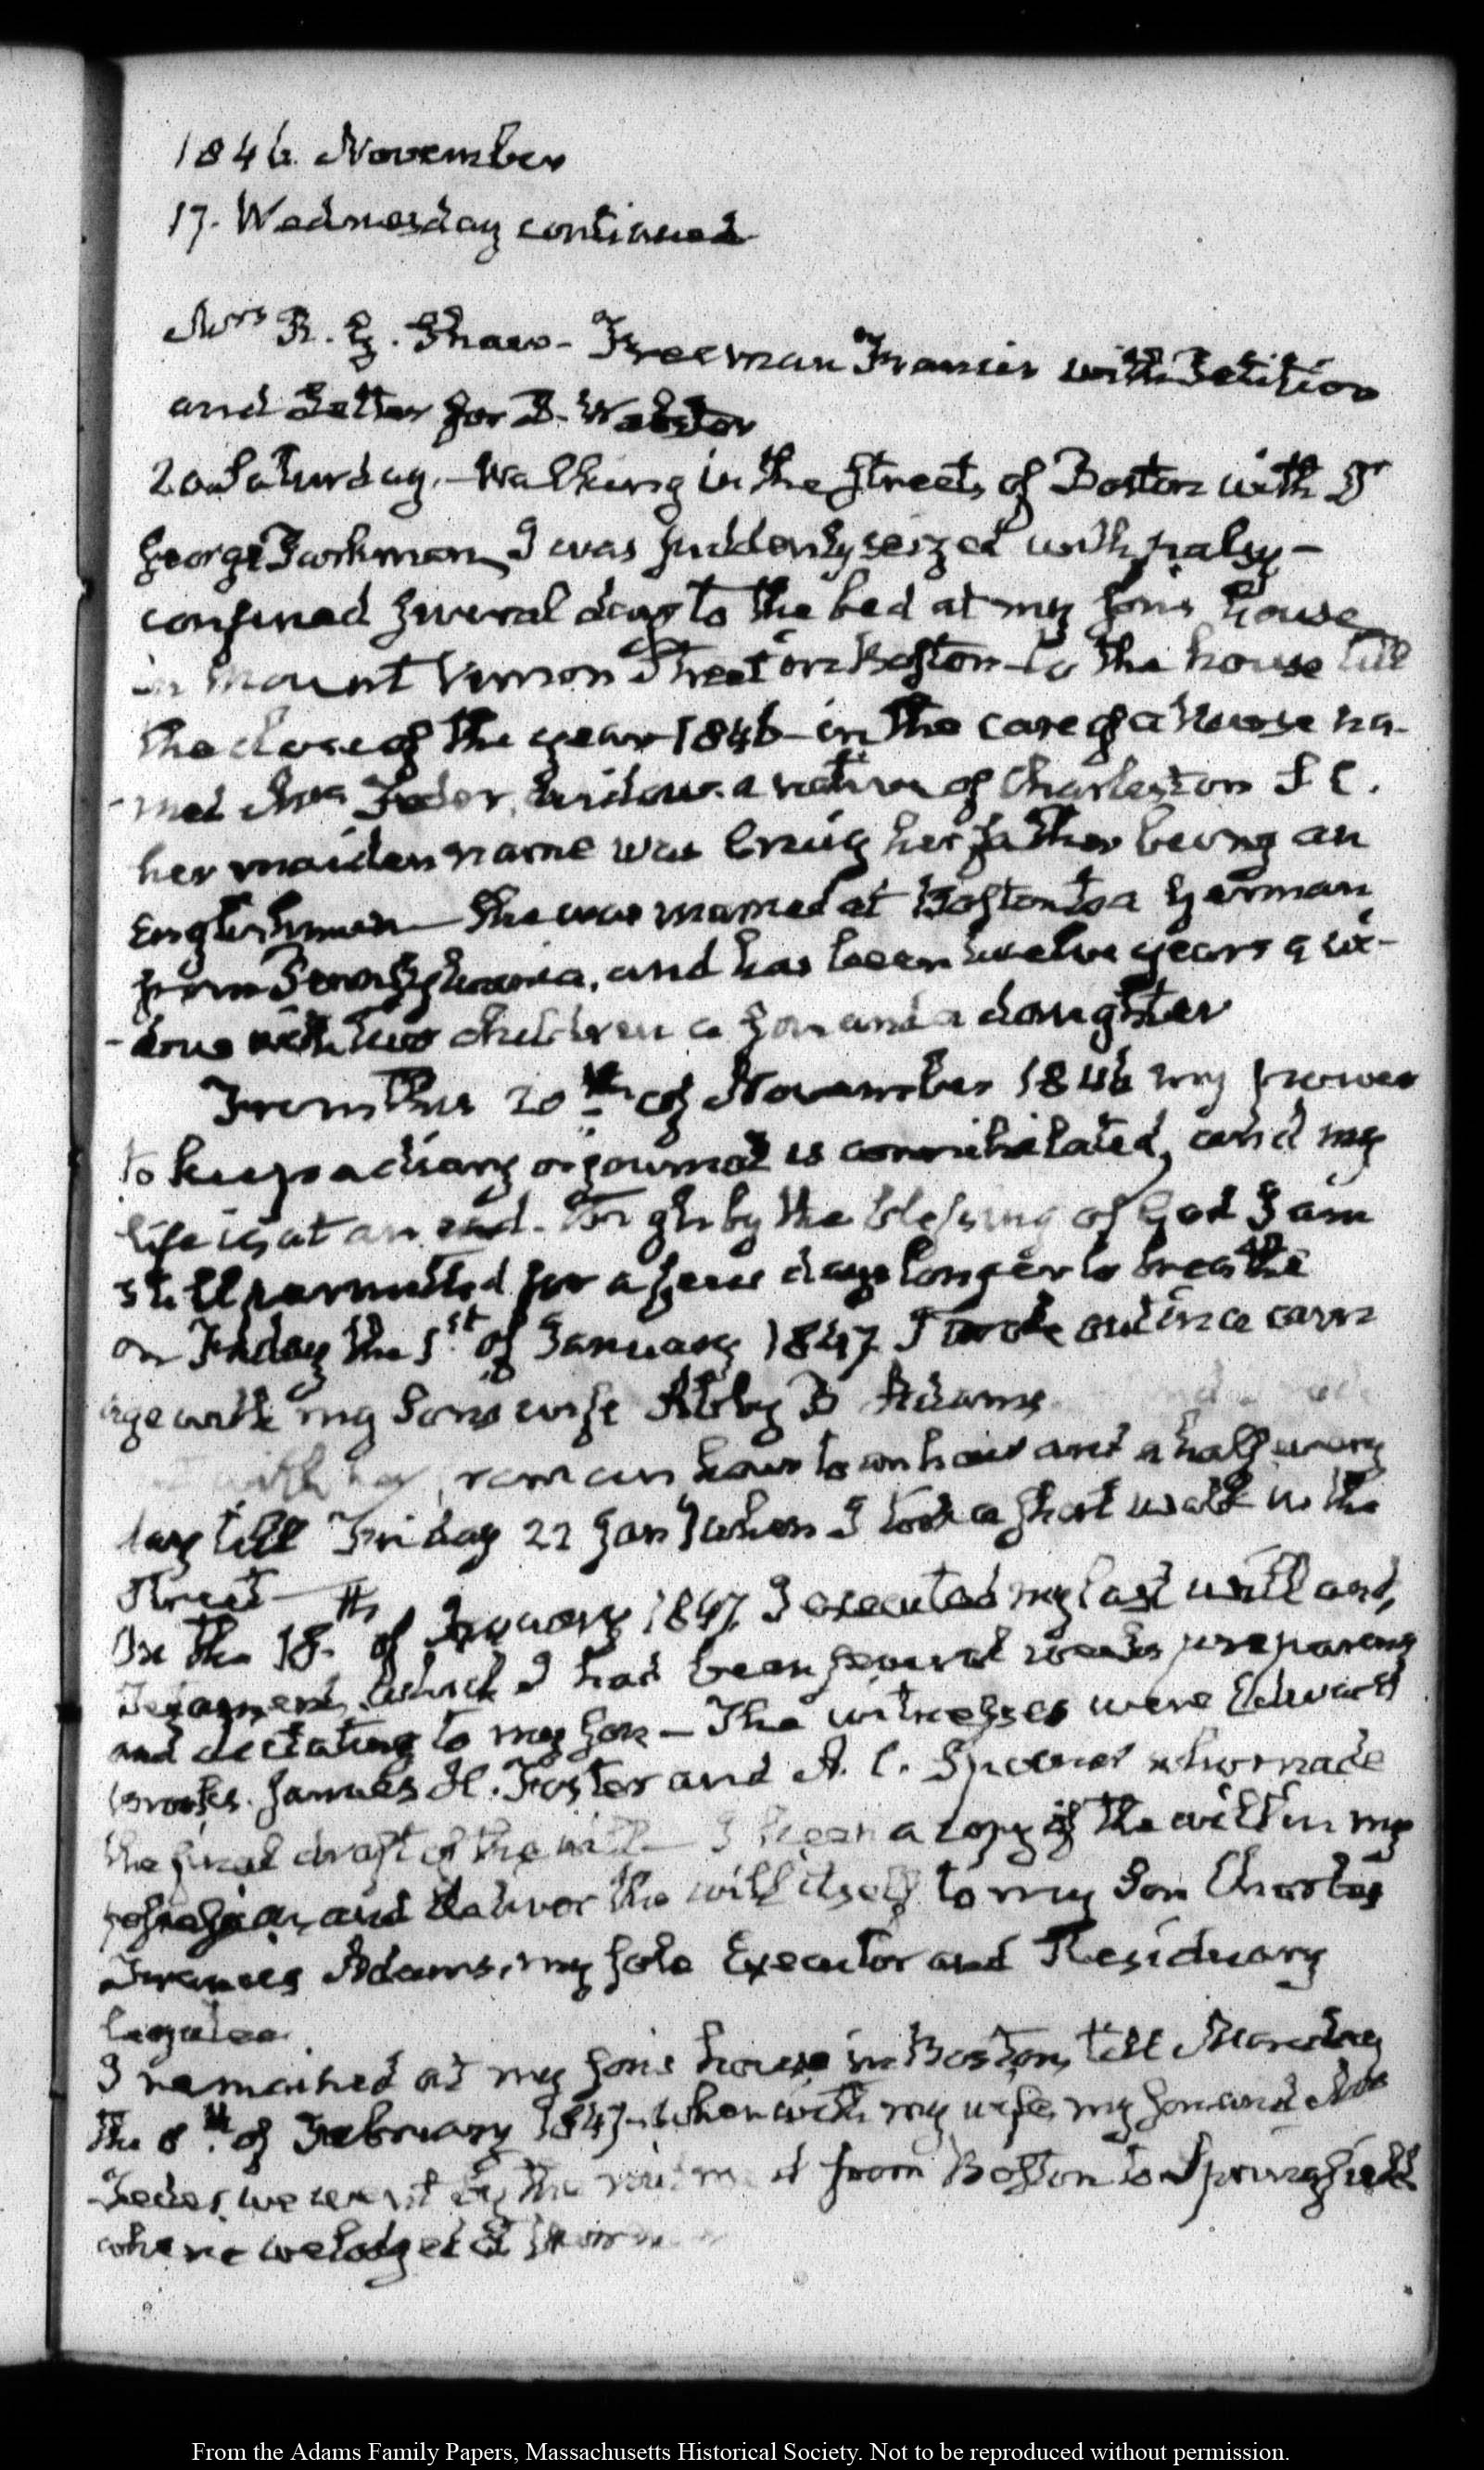 1846. November
17. Wednesday continued
Mrs R. G. Shaw - Freeman Francis with Petition
and Letter for D. Webster
20 Saturday. - Walking in the streets of Boston with Dr
George Parkman, I was suddenly seized with palsy -
confined several days to the bed at my sons house
in Mount Vernon Street in Boston - to the house till
the close of the year 1846 - in the care of a Nurse na-
-med Mrs Feder, widow. a native of Charleston S C.
her maiden name was Craig her father being an
Englishman - She was married at Boston to a German
from Pennsylvania, and has been twelve years a wi-
-dow with two children a son and a daughter
From this 20th of November 1846 my power
to keep a diary or journal is annihilated, and my
life is at an end. Though by the blessing of God I am
still permitted for a few days longer to breathe
on Friday the 1st of January 1847 I rode out in a carri
age with my Sons wife Abby B Adams
with her, hour to an hour and a half every
day till Friday 22 Jany when I took a short walk in the
Street -
On the 18th of January 1847. I executed my last will and,
Testament, which I had been several weeks preparing
and dictating to my Son - The witnesses were Edward
Brooks. James H. Foster and A. C. Spooner who made
the final draft of the will - I keep a copy of the will in my
possession, and deliver the will itself to my Son Charles
Francis Adams, my sole Executor and Residuary
legatee.
I remained at my sons house in Boston, till Monday
the 8th of February 1847 - when with my wife, my son and Mrs
Feder, we went by the from Boston to Springfield
where we lodged at
From the Adams Family Papers, Massachusetts Historical Society. Not to be reproduced without permission.